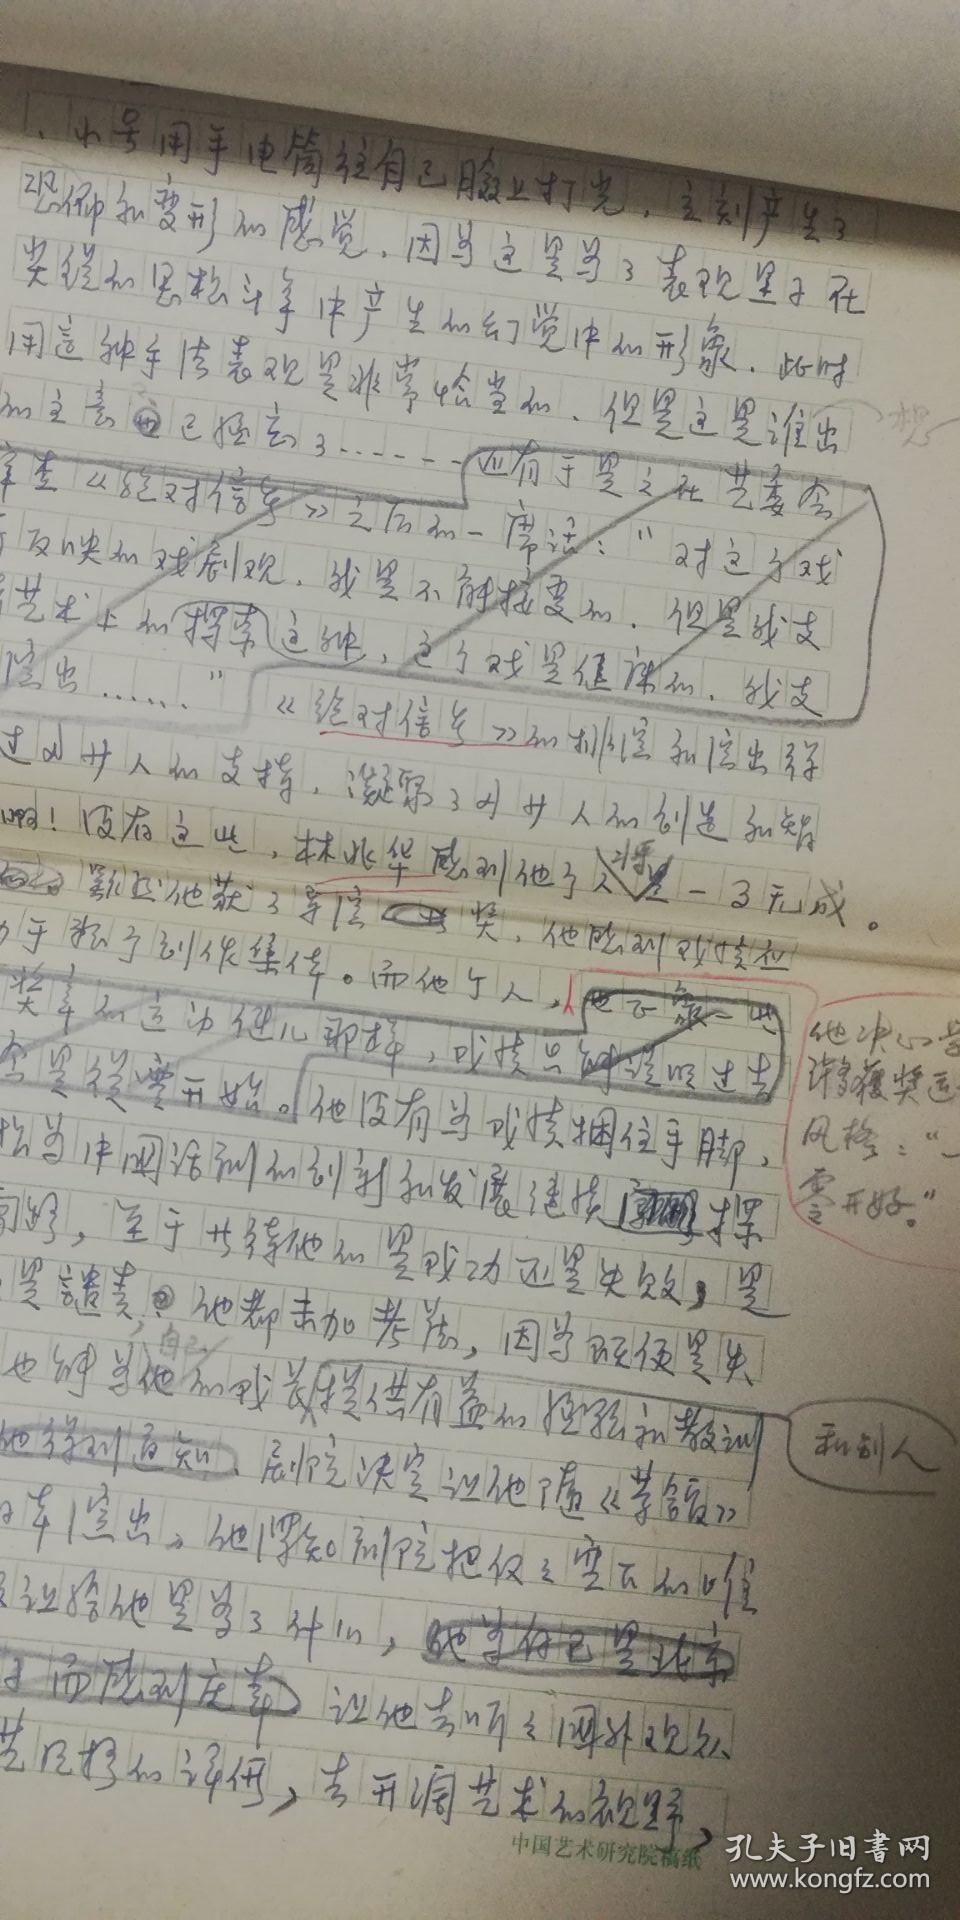 小号用手电筒往自己脸上打光，立刻产生了
恐怖和变形的感觉，因为这是为了表现黑子在
尖锐的思想斗争中产生的幻觉中的形象，此时
用这种手法表现是非常恰当的，但是这是谁出
想
的主意也已经忘了……还有于是之在艺委会
审查《绝对信号》之后的一席话："对这个戏
反映的戏剧观，我是不能接受的，但是我支
艺术上的探索这种，这个戏是健康的，我支
演出……"《绝对信号》的排演和演出得
过多少人的支持，凝聚了多少人的创造和智
啊！没有这些，林兆华感到他个人将是一事无成。
虽然他获了导演奖，他感到成绩应
于整个创作集体。而他个人，他正象一些
奖章的运动健儿那样，成绩只能说明过去
是从零开始。他没有为成绩捆住手脚，
为中国话剧的创新和发展继续探
至于等待他的是成功还是失败，是
是谴责，他都未加考虑，因为既便是失
自己
也能为他的成长提供有益的经验和教训
和别人
他得到通知，剧院决定让他随《茶馆》
演出，他深知剧院把仅仅空下的唯
让给他是为了什么，他为自己是北京
而感到庆幸 让他去听听国外观众
艺风格的评价，去开阔艺术的视野，
他决心学
许多获奖运
风格："一
零开始。"
中国艺术研究院稿纸
孔夫子旧书网
www.kongfz.com